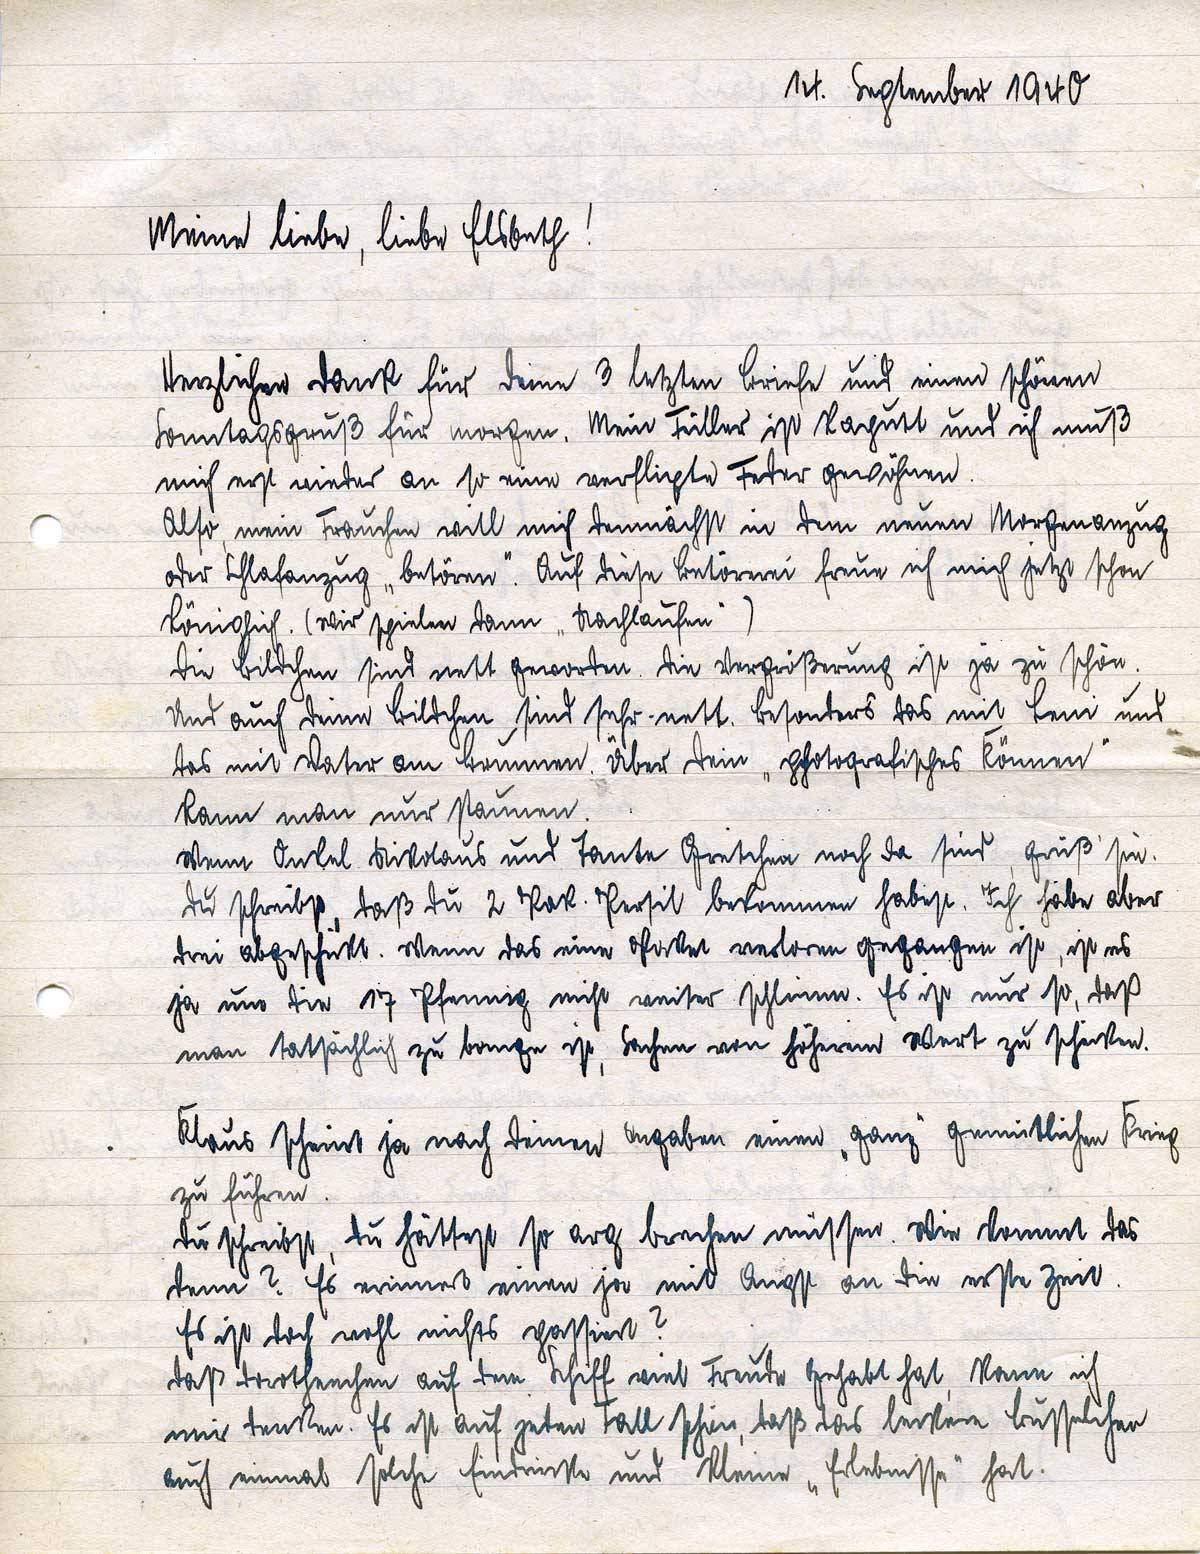 14. September 1940
Meine liebe, liebe Elsbeth!
Herzlichen Dank für Deine 3 letzten Briefe und einen schönen
Sonntagsgruß für morgen. Mein Füller ist kaputt und ich muß
mich erst wieder an so eine verflixte Feder gewöhnen.
Also, mein Frauchen will mich demnächst in dem neuen Morgenanzug
oder Schlafanzug „betören“. Auf diese Betörerei freue ich mich jetzt schon
königlich. (Wir spielen dann „Nachlaufen“)
Die Bildchen sind nett geworden. Die Vergrößerung ist ja zu schön.
Und auch Deine Bildchen sind sehr nett. Besonders das mit Leni und
das mit Vater am Brunnen. Über Dein „photografisches Können“
kann man nur staunen.
Wenn Onkel Nikolaus und Tante Gretchen noch da sind, grüß sie.
Du schreibst, daß Du 2 Pak. Persil bekommen habest. Ich habe aber
drei abgeschickt. Wenn das eine Paket verloren gegangen ist, ist es
ja um die 17 Pfennig nicht weiter schlimm. Es ist nur so, daß
man tatsächlich zu bange ist, Sachen von höherem Wert zu schicken.
Klaus scheint ja nach Deinen Angaben einen „ganz“ gemütlichen Krieg
zu führen.
Du schreibst, Du hättest so arg brechen müssen. Wie kommt das
denn? Es erinnert einen ja mit Angst an die erste Zeit.
Es ist doch wohl nichts passiert?
Daß Dorotheechen auf dem Schiff viel Freude gehabt hat, kann ich
mir denken. Es ist auf jeden Fall schön, daß das leckere Busselchen
auch einmal solche Eindrücke und kleine „Erlebnisse“ hat.